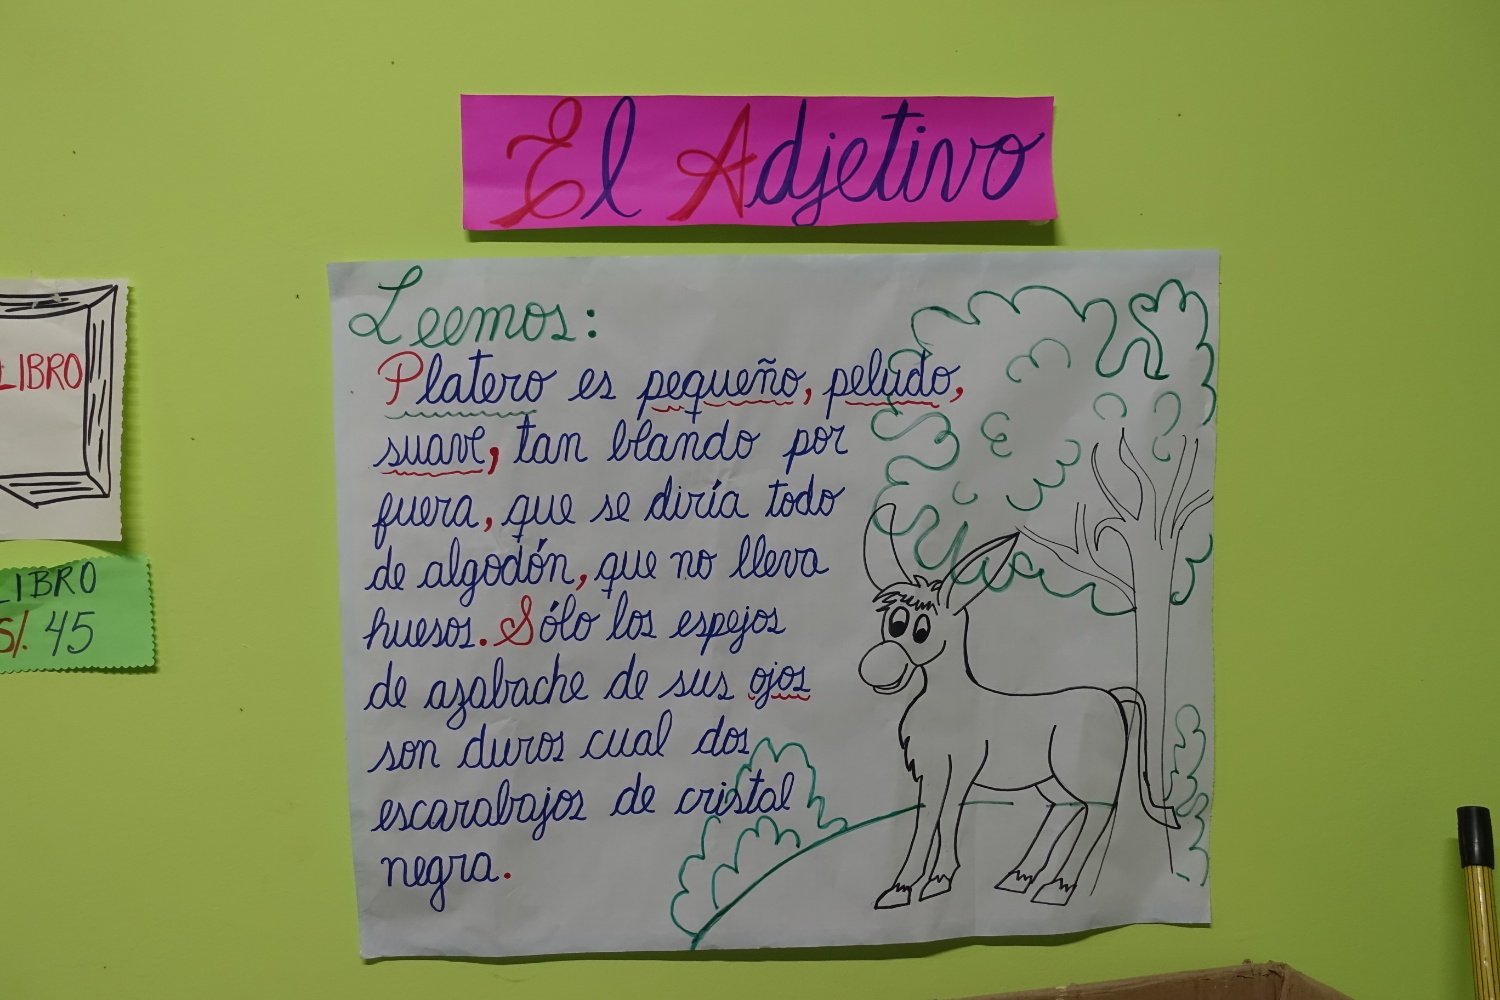 El Adjetivo
Leemos:
Platero es pequeño, peludo,
suave, tan blando por
fuera, que se diría todo
de algodón, que no lleva
huesos. Sólo los espejos
de azabache de sus ojos
son duros cual dos
escarabajos de cristal
negra.
LIBRO
LIBRO
S/. 45